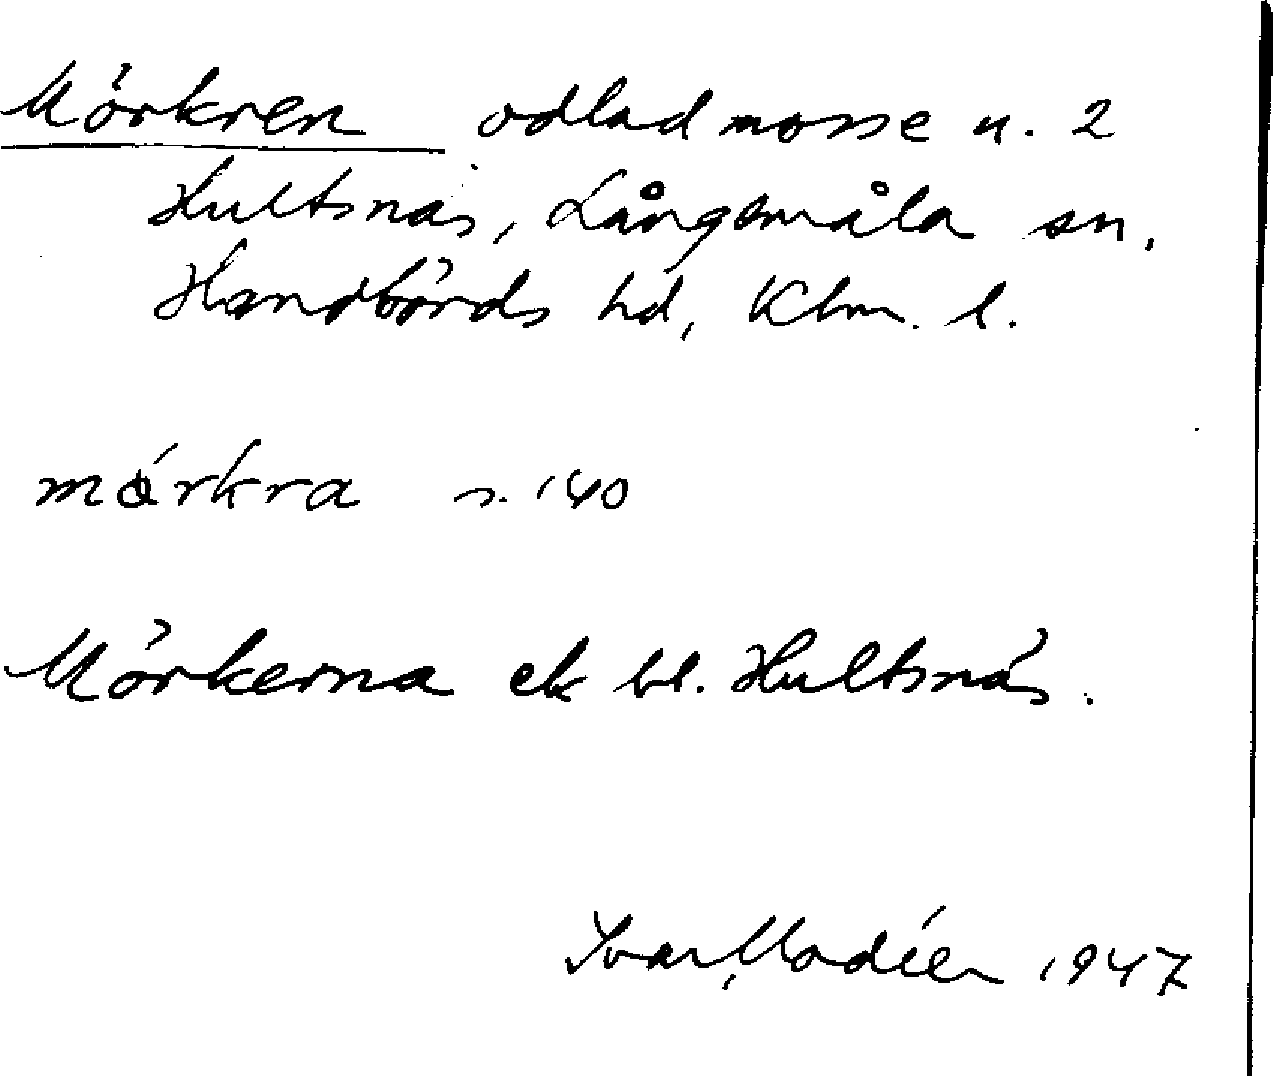 Mörkren odlad mosse u. 2
Hultsnäs, Långemåla sn,
Handbörds hd, Klm. l.
mórkra s. 140
Mörkerna ek bl. Hultsnäs.
Ivar Modéer 1947